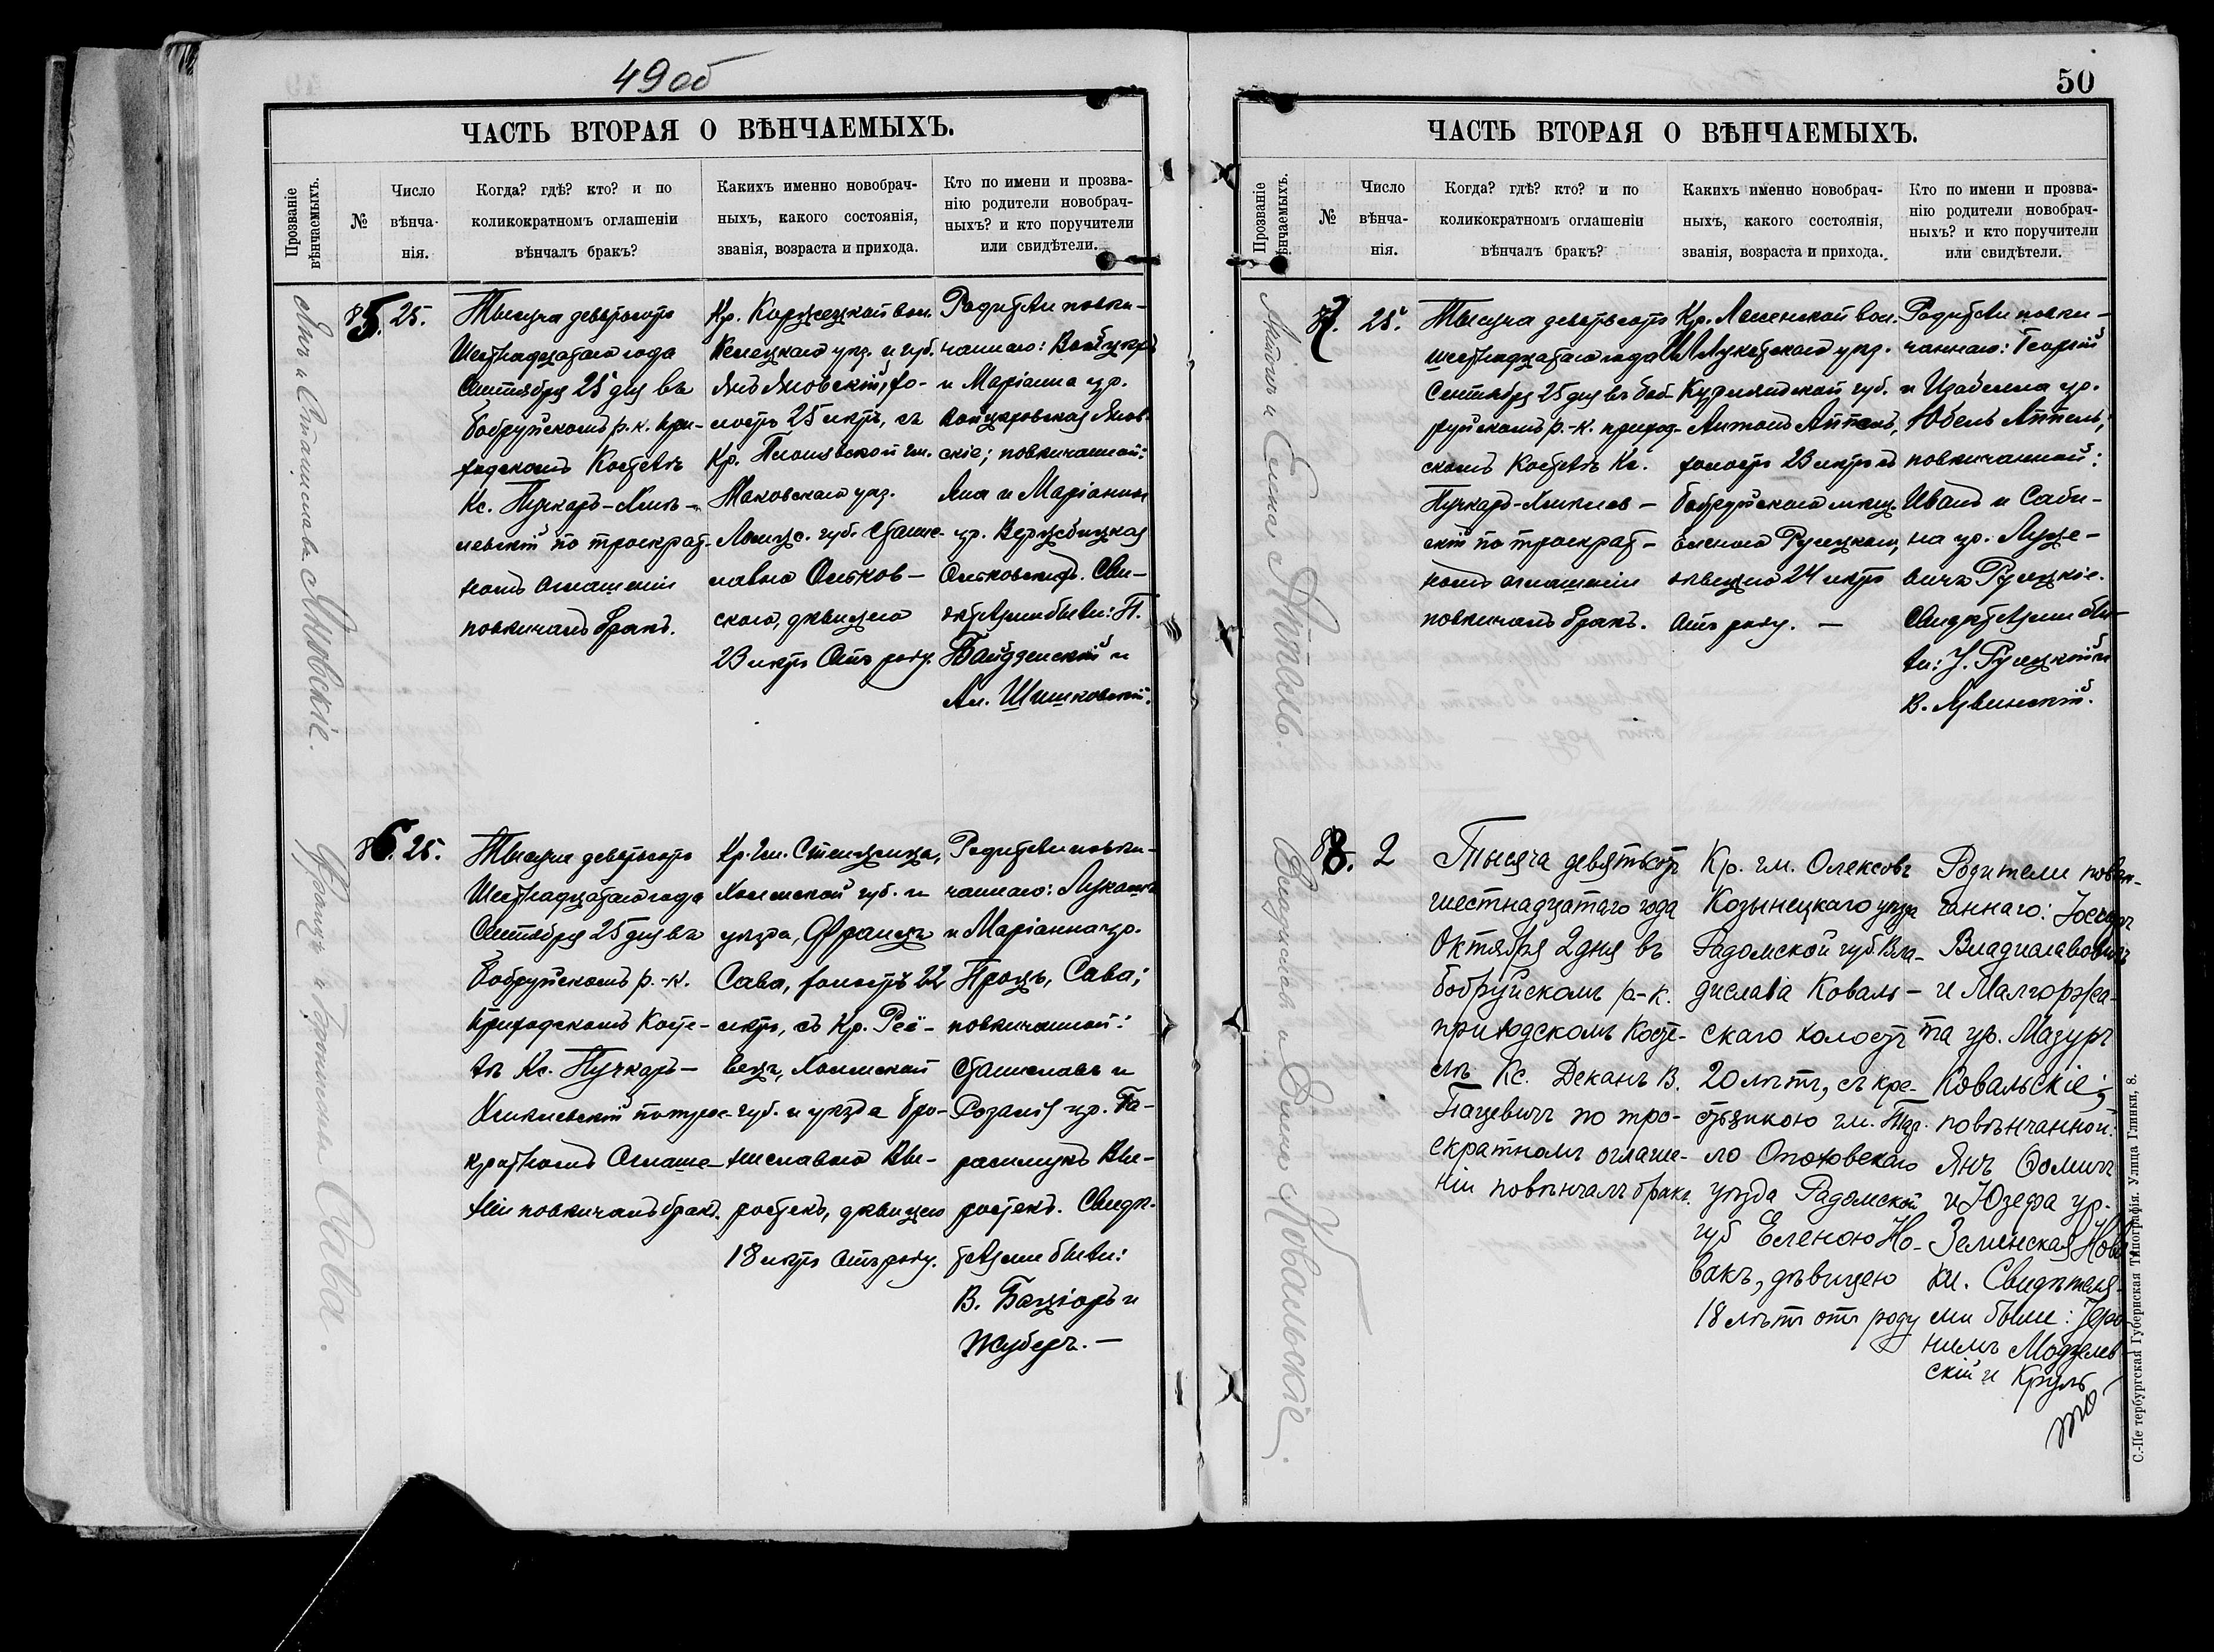 49 об
ЧАСТЬ ВТОРАЯ О ВѢНЧАЕМЫХЪ.
Прозваніе
вѣнчаемыхъ.
№
Число
вѣнча-
нія.
Когда? гдѣ? кто? и по
коликократномъ оглашеніи
вѣнчалъ бракъ?
Какихъ именно новобрач-
ныхъ, какого состоянія,
званія, возраста и прихода.
Кто по имени и прозва-
нію родители новобрач-
ныхъ? и кто поручители
или свидѣтели.
Янъ и Станислава Яновскіе.
85.
25.
Тысяча девятьсотъ
Шестнадцатаго года
Сентября 25 дня въ
Бобруйскомъ р.-к. при-
ходскомъ Костелѣ
Кс. Пучкаръ-Хмѣ-
левскій по троекрат-
номъ оглашеніи
повѣнчалъ бракъ.
Кр. вол.
Келецкаго уѣз. и губ.
Янъ Яновскій, хо-
лостъ 25 лѣтъ, съ
Кр. гм.
Маковскаго уѣз.
Ломж. губ. Стани-
славою
скою, дѣвицею
23 лѣтъ отъ роду.
Родители повѣн-
чаннаго: Войцѣхъ
и Маріанна ур.
Янов-
скіе; повѣнчанной:
Яна и Маріанны
ур.
Сви-
дѣтелями были: П.
и
Ал. Шишковскій.
Францъ и Бронислава Сава.
86.
25.
Тысяча девятьсотъ
Шестнадцатаго года
Сентября 25 дня въ
Бобруйскомъ р.-к.
Приходскомъ Косте-
лѣ Кс. Пучкаръ-
Хмѣлевскій по трое-
кратномъ Оглаше-
ніи повѣнчалъ бракъ.
Кр. гм.
Холмской губ. и
уѣзда, Францъ
Сава, холостъ 22
лѣтъ, съ Кр.
вецъ, Холмской
губ. и уѣзда Бро-
ниславою Вы-
ростекъ, дѣвицею
18 лѣтъ отъ роду.
Родители повѣн-
чаннаго: Лукашъ
и Маріанна ур.
Процъ, Сава;
повѣнчанной:
Станиславъ и
Розалія ур. Га-
расимукъ Вы-
ростекъ. Свидѣ-
телями были:
В. и
50
ЧАСТЬ ВТОРАЯ О ВѢНЧАЕМЫХЪ.
Прозваніе
вѣнчаемыхъ.
№
Число
вѣнча-
нія.
Когда? гдѣ? кто? и по
коликократномъ оглашеніи
вѣнчалъ бракъ?
Какихъ именно новобрач-
ныхъ, какого состоянія,
званія, возраста и прихода.
Кто по имени и прозва-
нію родители новобрач-
ныхъ? и кто поручители
или свидѣтели.
Антонъ и Елена Аппель.
87.
25.
Тысяча девятьсотъ
шестнадцатаго года
Сентября 25 дня въ Боб-
руйскомъ р.-к. приход-
скомъ Костелѣ Кс.
Пучкаръ-Хмѣлев-
скій по троекрат-
номъ оглашеніи
повѣнчалъ бракъ.
Кр. вол.
уѣз.
Курляндской губ.
Антонъ Аппель,
холостъ 23 лѣтъ съ
Бобруйскою мѣщ.
Еленою Русецкою,
дѣвицею 24 лѣтъ
отъ роду. —
Родители повѣн-
чаннаго: Георгій
и Изабелла ур.
Юбель Аппель;
повѣнчанной:
Иванъ и Саби-
на ур. Луце-
вичъ Русецкіе.
Свидѣтелями бы-
ли: І. Русецкій и
В.
Владиславъ и Елена Ковальскіе.
88.
2
Тысяча девятьсотъ
шестнадцатаго года
Октября 2 дня въ
Бобруйскомъ р-к.
приходскомъ Косте-
лѣ Кс. Деканъ В.
Пацевичъ по тро-
екратномъ оглаше-
ніи повѣнчалъ бракъ.
Кр. гм. Олексовъ
Козынецкаго уѣзда
Радомской губ. Вла-
дислава Коваль-
скаго холостъ
20 лѣтъ, съ кре-
стьянкою гм.
уѣзда Радомской
губ Еленою Но-
вакъ, дѣвицею
18 лѣтъ отъ роду
Родители повѣн-
чаннаго: Іосифъ
Владиславовичъ
и Малгоржа-
та ур. Мазуръ
Ковальскіе;
повѣнчанной:
Янъ Ѳомичъ
и Юзефа ур.
Зелинская Нова-
ки. Свидѣтеля-
ми были: Іеро-
нимъ Модзелев-
скій и Круль
С.-Петербургская Губернская Типографія. Улица Глинки, 8.